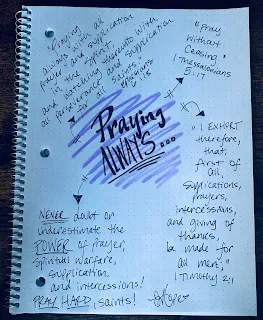 "Praying
always with all
prayer and supplication
in the Spirit,
and watching thereunto with
all perseverance and supplication
for all
saints."
Ephesians
6:18
"Pray
Without
Ceasing."
1 Thessalonians
5:17
Praying
ALWAYS...
"I EXHORT
therefore,
that,
first of
all,
supplications,
prayers,
intercessions,
and giving of
thanks,
be made for
all men;"
1 Timothy 2:1
NEVER doubt or
underestimate the
POWER of prayer,
spiritual warfare,
supplication,
and intercessions!
PRAY HARD, saints!